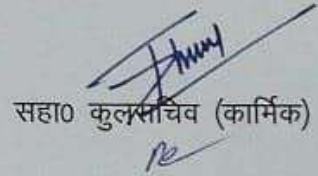 सहा0 कुलसचिव (कार्मिक)